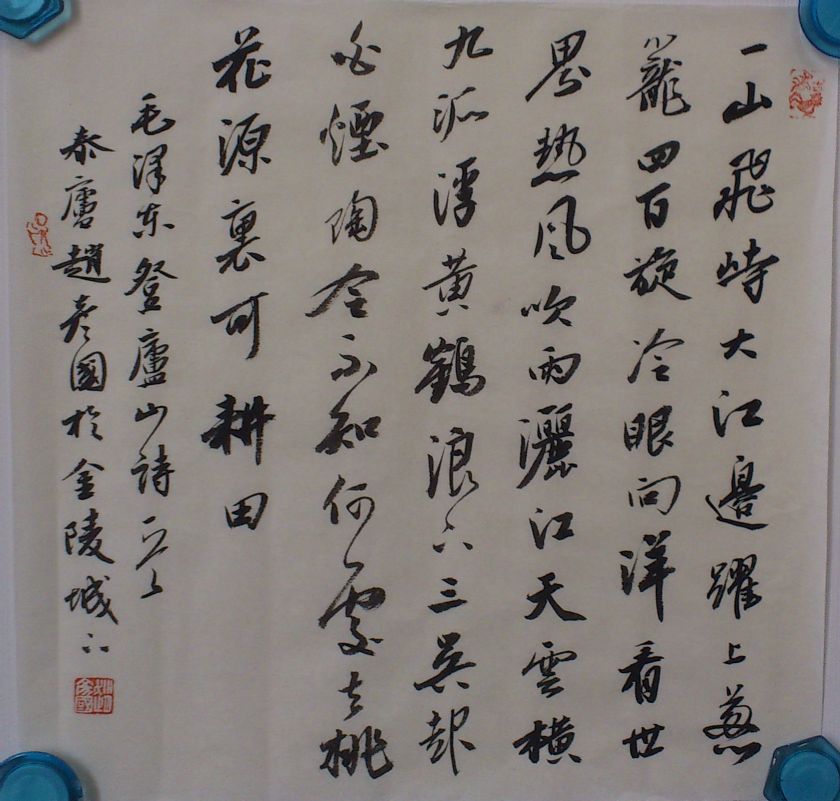 一山飛峙大江邊躍上葱
蘢四百旋冷眼向洋看世
界熱風吹雨灑江天雲横
九派浮黃鶴浪下三吳起
白煙陶令不知何處去桃
花源裏可耕田
毛澤東登廬山詩一首
泰趙彥國於金陵城下